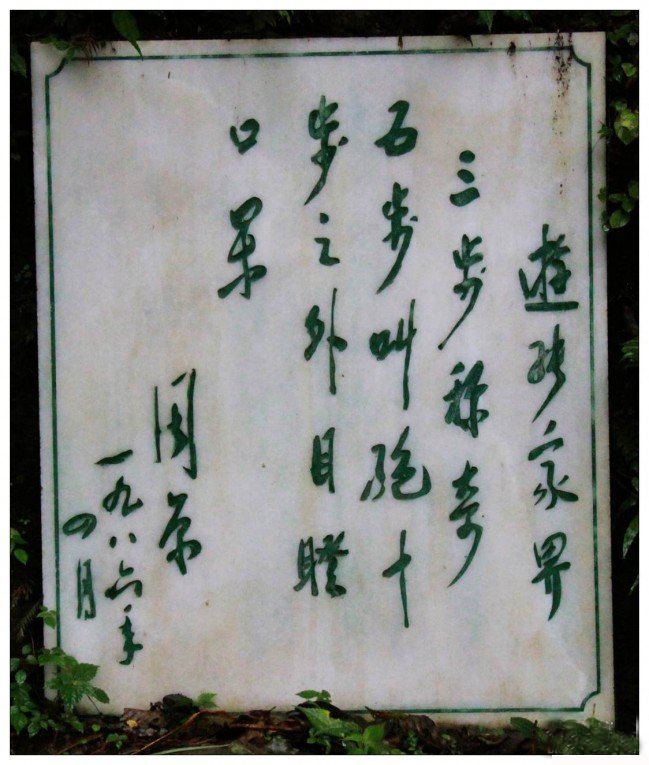 遊张家界
三步称奇
五步叫絶十
步之外目瞪
口呆
周
一九八六年
四月